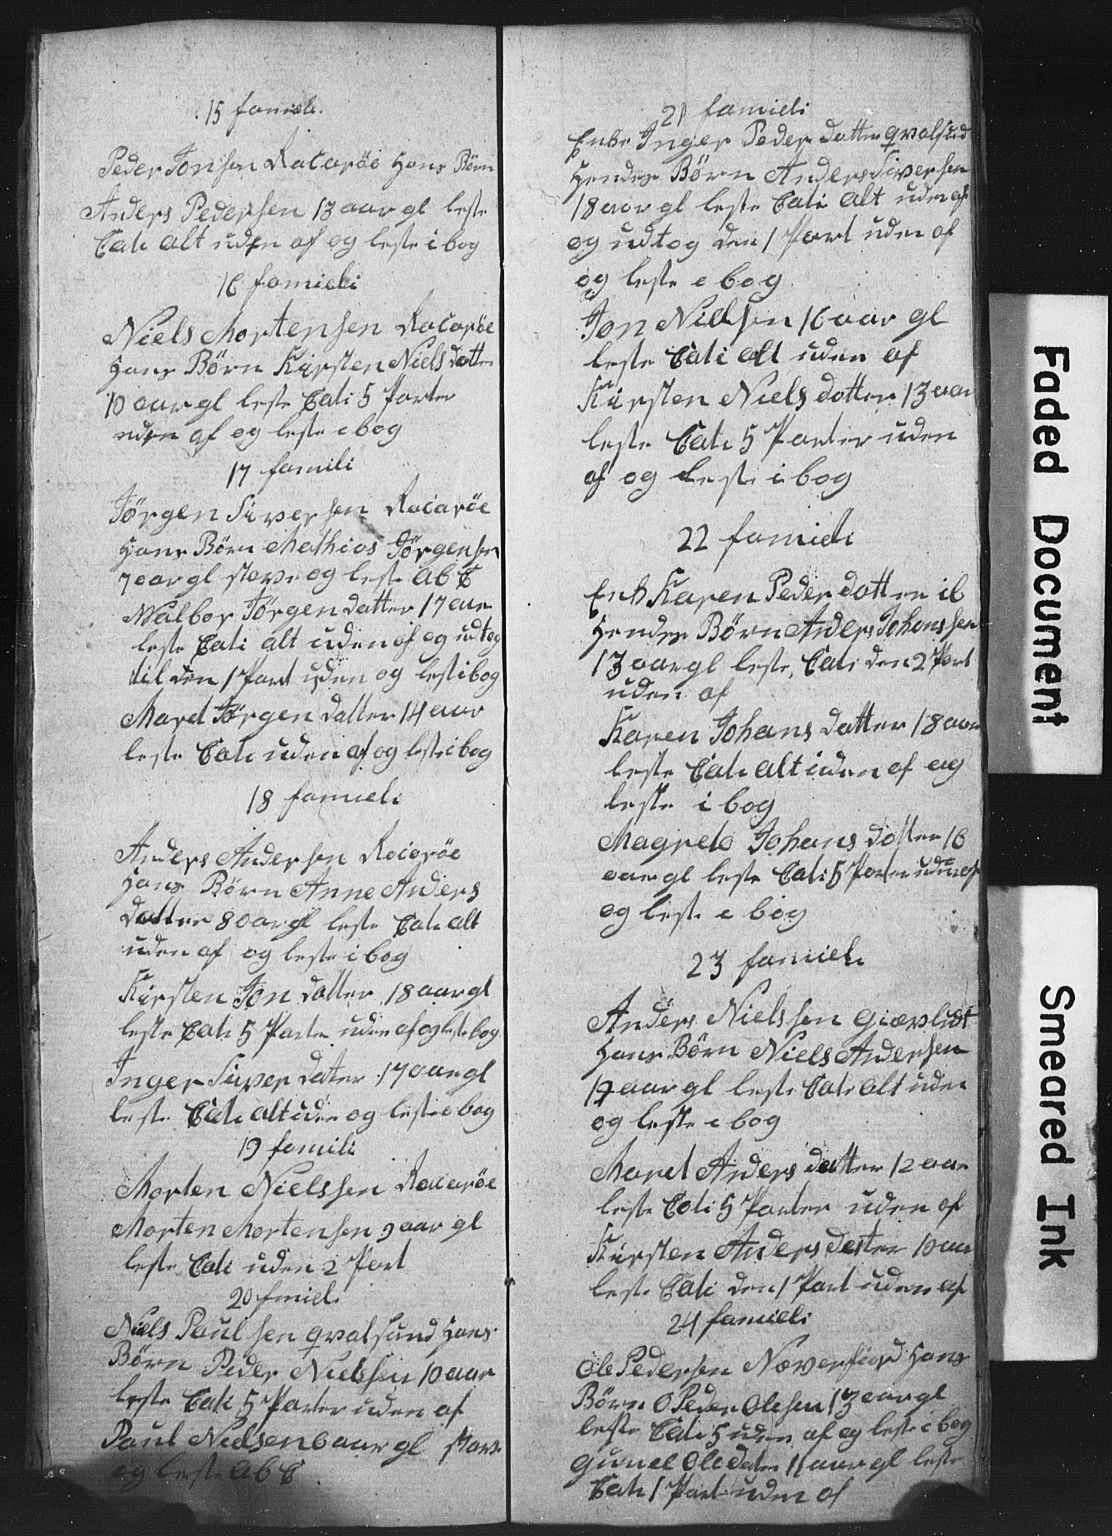 15 famieli
Peder Jonsen Racaröe Hans Börn
Anders Pedersen 13 aar gl leste
Cati alt uden af og leste i bog
16 famieli
Niels Mortensen Racaröe
Hans Börn Kirsten Niels datter
10 aar gl leste Cati 5 Parter
uden af og leste i bog
17 famili
Jörgen Siversen Racaröe
Hans Börn Mathias Jörgensen
7 aar gl stave og leste AbC
Walbor Jörgen datter 17 aar
leste Cati alt uden af og udtog
til den 1 Part uden og lest i bog
Maret Jörgen datter 14 aar
leste Cati uden af og leste i bog
18 famieli
Anders Andersen Racaröe
Hans Börn Anne Anders
datter 8 aar gl leste Cati alt
uden af og leste i bog
Kirsten Jon datter 18 aar gl
leste Cati 5 Parter uden af og leste bog
Inger Siver dater 17 aar gl
leste Cati alt uden og leste i bog
19 famili
Morten Nielssen Racaröe
Morten Mortensen 9 aar gl
leste Cati uden 2 Part
20 fmieli
Niels Paulsen qvalsund Hans
Börn Peder Nielsen 10 aar
leste Cati 5 Parter uden af
Paul Nielsen 6 aar gl stave
og leste AbC
21 famieli
Enke Inger Peder datter qvalsund
Hendes Börn Anders Siversen
18 aar gl leste Cati alt uden af
og udtog den 1 Part uden af
og leste i bog
Jon Nielsen 16 aar gl
leste Cati alt uden af
Kirsten Niels dotter 13 aar
leste Cati 5 Parter uden
af og leste i bog
22 famieli
Enk Karen Peder datter ib
Hendes Börn Anders Johanssen
13 aar gl leste Cati den 2 Part
uden af
Karen Johans datter 18 aar
leste Cati alt uden af og
leste i bog
Magrete Johans dotter 16
aar gl leste Cati 5 Parter uden af
og leste i bog
23 famieli
Anders Nielssen
Hans Börn Niels Andersen
17 aar gl leste Cati alt uden
og leste i bog
Maret Anders datter 12 aar
leste Cati 5 Parter uden af
Kirsten Anders datter 10 aar
leste Cati den 1 Part uden af
24 famieli
Ole Pedersen Næverfiord Hans
Börn O Peder Olesen 13 aar gl
leste Cati 5 uden af og leste i bog
Gunel Ole dater 11 aar gl leste
Cati 1 Part uden af
Faded Document
Smeared Ink